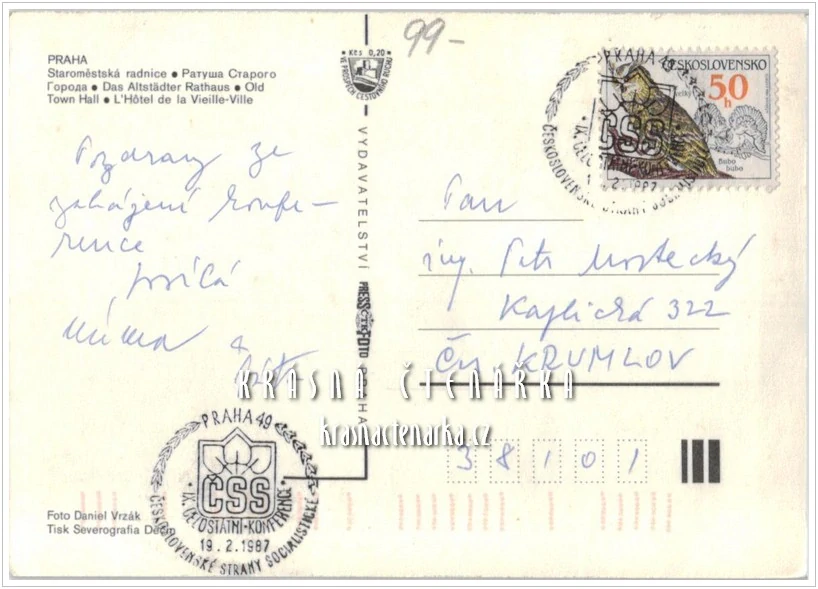 99-
PRAHA
Staroměstská radnice ● Ратуша Старого
Города ● Das Altstädter Rathaus ● Old
Town Hall ● L'Hôtel de la Vieille-Ville
Kčs 0,20
VE PROSPĚCH CESTOVNÍHO RUCHU
ČESKOSLOVENSKO
50 h
velký
Bubo
bubo
PRAHA 49
ČSS
IX. CELOSTÁTNÍ KONFERENCE
ČESKOSLOVENSKÉ STRANY SOCIALISTICKÉ
Pozdravy ze
zahájení konfe-
rence
posílá
VYDAVATELSTVÍ PRESSFOTO PRAHA
Pan
ing. Petr Mostecký
Kaplická 322
Čes. KRUMLOV
38101
KRÁSNÁ ČTENÁŘKA
krasnactenarka.cz
PRAHA 49
ČSS
IX. CELOSTÁTNÍ KONFERENCE
19.2.1987
ČESKOSLOVENSKÉ STRANY SOCIALISTICKÉ
Foto Daniel Vrzák
Tisk Severografia Děčín